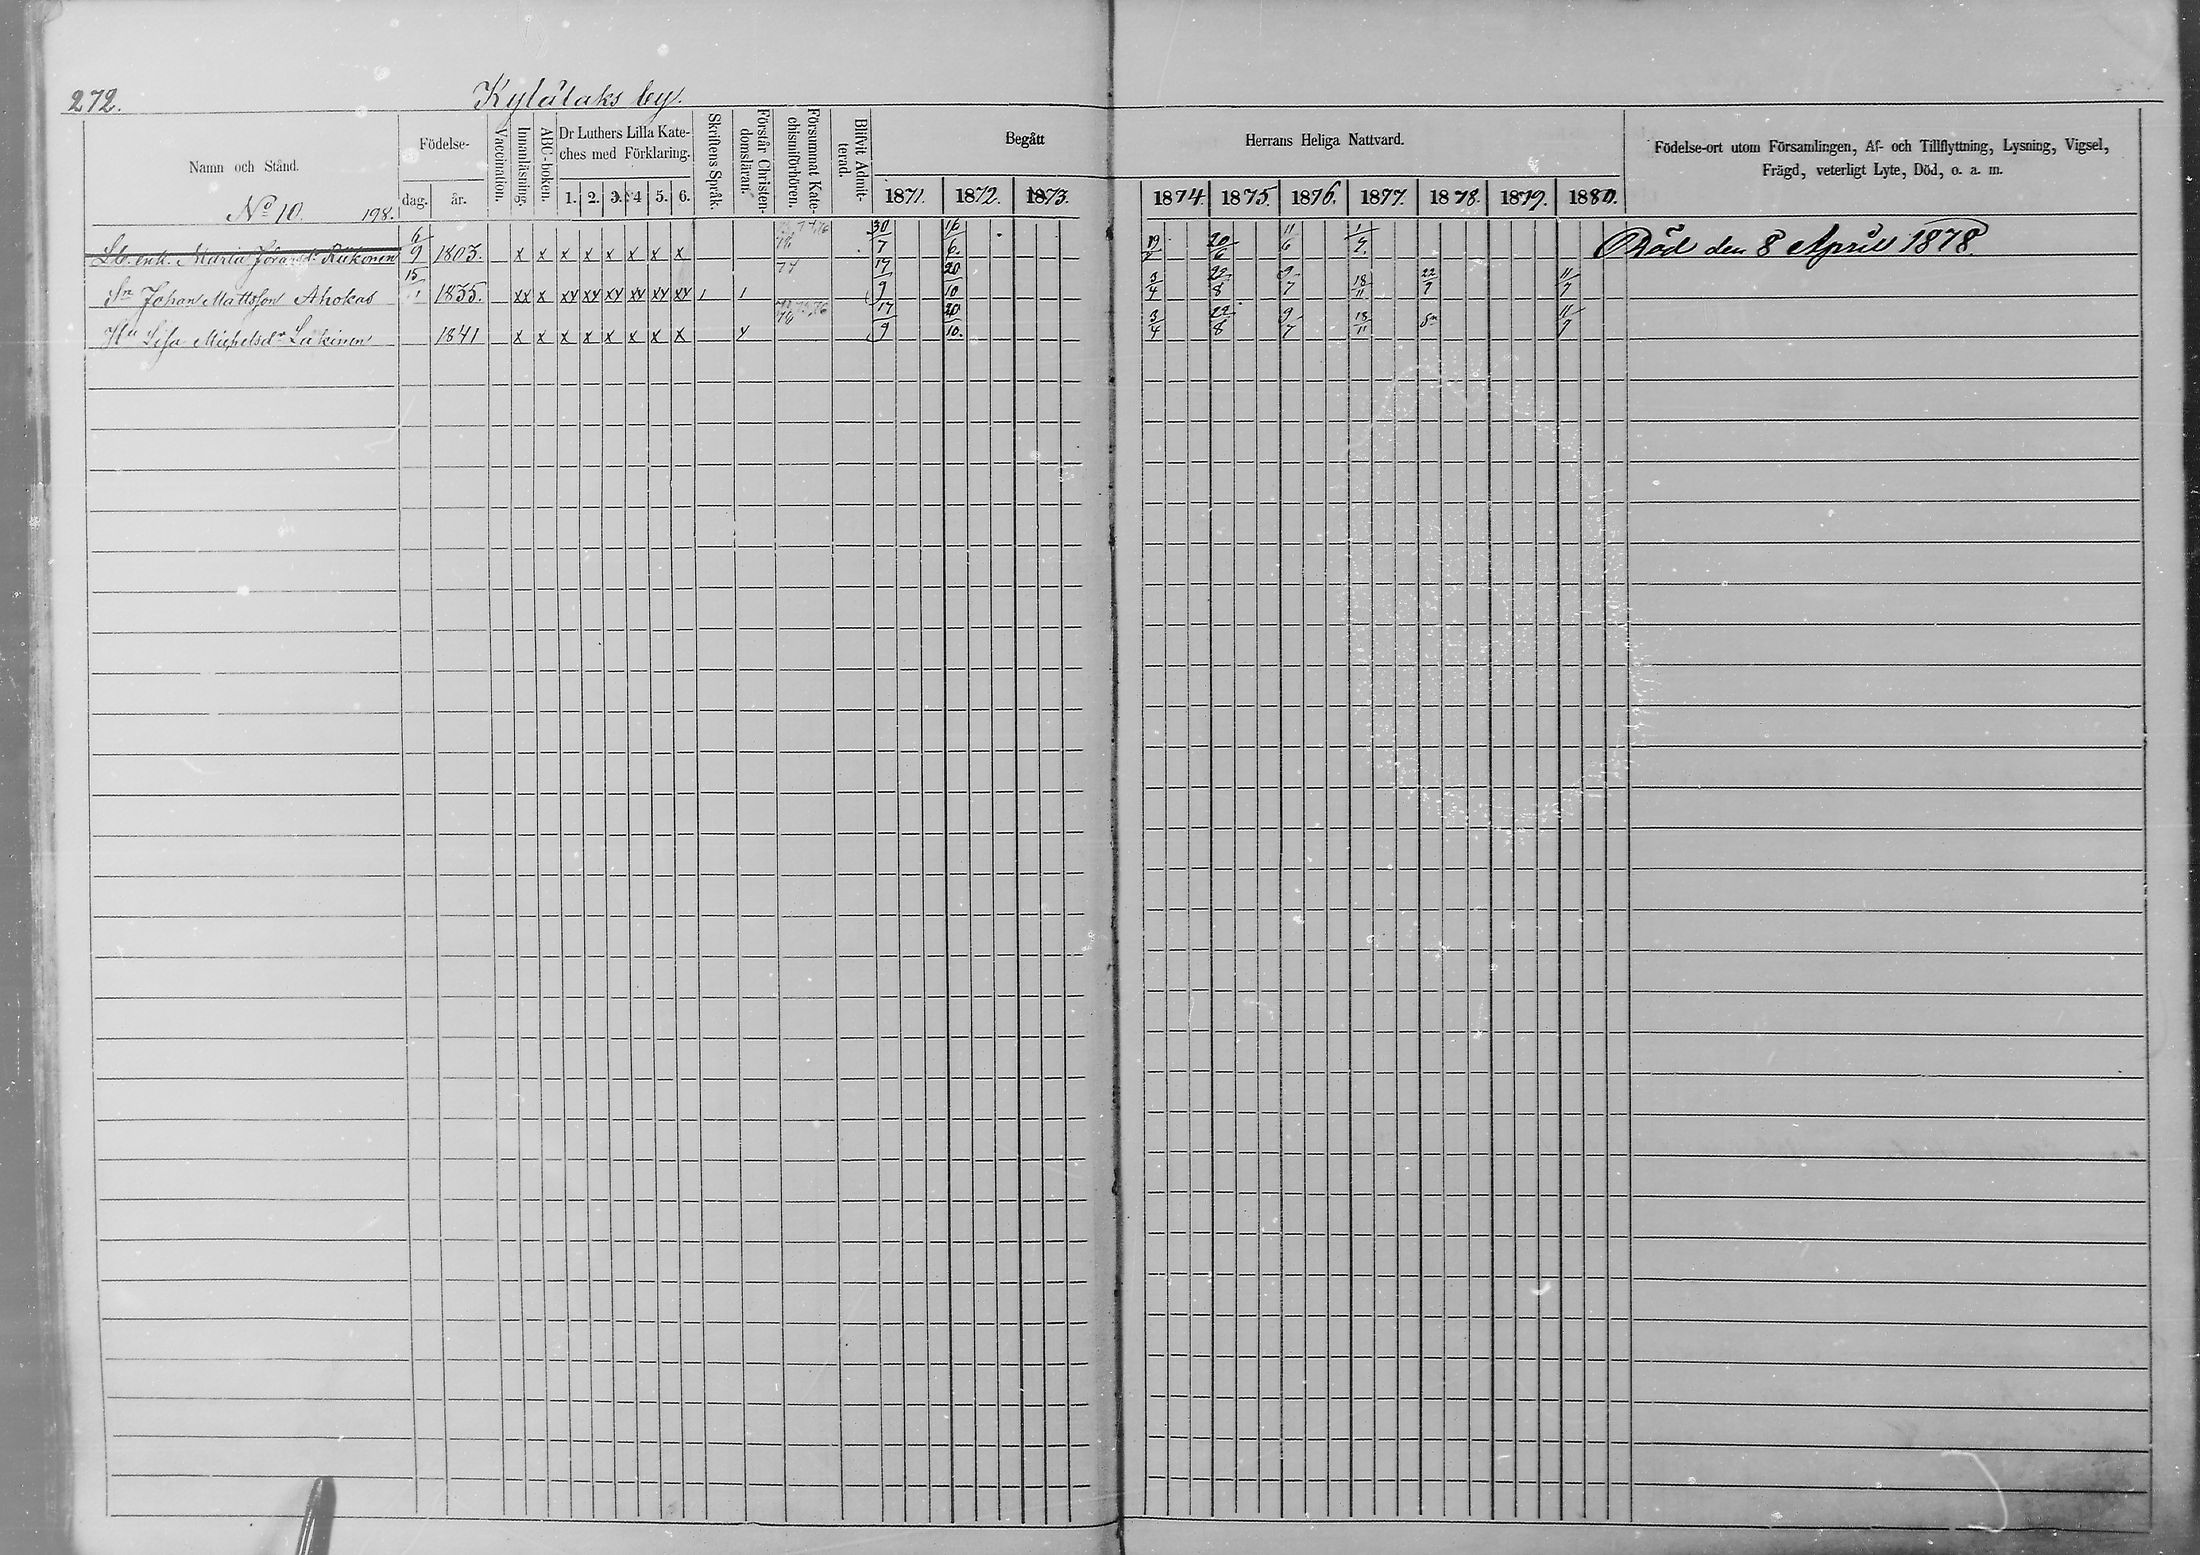 272. Kylälaks by.
Namn och Stånd.
Födelse-
dag. år.
Vaccination.
Innanläsning.
ABC-boken.
Dr Luthers Lilla Kate-
ches med Förklaring.
1. 2. 3. 4 5. 6.
Skriftens Språk.
Förstår Christen-
domsläran.
Försummat Kate-
chismiförhören.
Blifvit Admit-
terad.
Begått Herrans Heliga Nattvard.
1871. 1872. 1873. 1874. 1875. 1876. 1877. 1878. 1879. 1880.
Födelse-ort utom Församlingen, Af- och Tillflyttning, Lysning, Vigsel,
Frägd, veterligt Lyte, Död, o. a. m.
No 10. 198.
enk. Maria 6/9 1803. x x x x x x x x 30/7 16/6. 20/6 11/6 Död den 8 April 1878.
Sn Johan Mattsson Ahokas 15 1835. xx x xx xx xx xx xx xx 1 1 74 17/9 20/10 3/4 22/8 9/7 18/11 22/7 11/7
Hu Lisa Michelsdr 1841 x x x x x x x x 17/9 20/10. 3/4 22/8 9/7 18/11 11/7